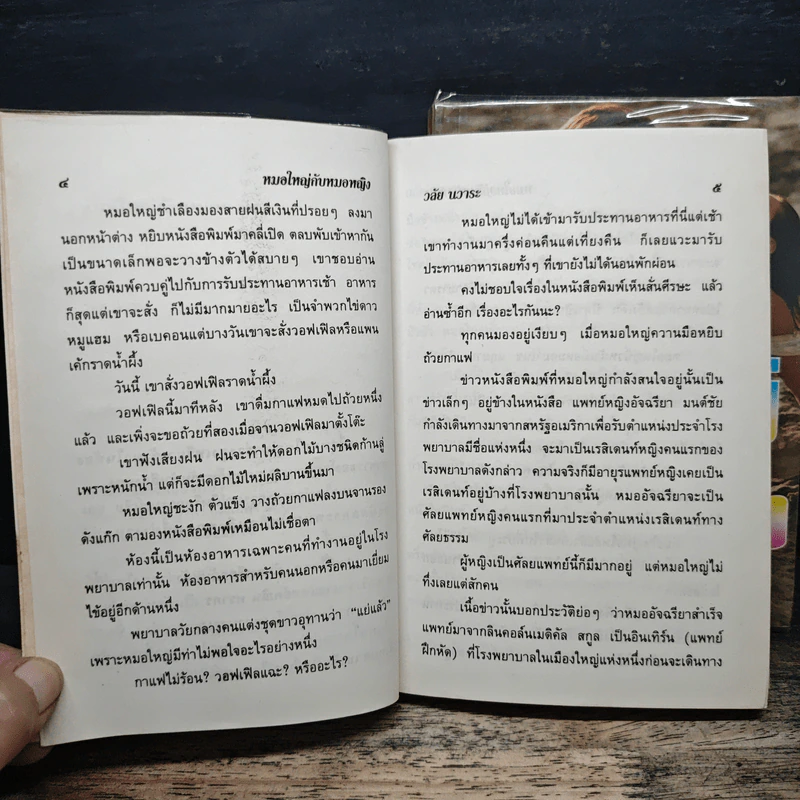 ๔
หมอใหญ่กับหมอหญิง
หมอใหญ่ชำเลืองมองสายฝนสีเงินที่ปรอยๆ ลงมา
นอกหน้าต่าง หยิบหนังสือพิมพ์มาคลี่เปิด ตลบพับเข้าหากัน
เป็นขนาดเล็กพอจะวางข้างตัวได้สบายๆ เขาชอบอ่าน
หนังสือพิมพ์ควบคู่ไปกับการรับประทานอาหารเช้า อาหาร
ก็สุดแต่เขาจะสั่ง ก็ไม่มีมากมายอะไร เป็นจำพวกไข่ดาว
หมูแฮม หรือเบคอนแต่บางวันเขาจะสั่งวอฟเฟิลหรือแพน
เค้กราดน้ำผึ้ง
วันนี้ เขาสั่งวอฟเฟิลราดน้ำผึ้ง
วอฟเฟิลนี้มาทีหลัง เขาดื่มกาแฟหมดไปถ้วยหนึ่ง
แล้ว และเพิ่งจะขอถ้วยที่สองเมื่อจานวอฟเฟิลมาตั้งโต๊ะ
เขาฟังเสียงฝน ฝนจะทำให้ดอกไม้บางชนิดก้านลู่
เพราะหนักน้ำ แต่ก็จะมีดอกไม้ใหม่ผลิบานขึ้นมา
หมอใหญ่ชะงัก ตัวแข็ง วางถ้วยกาแฟลงบนจานรอง
ดังแก๊ก ตามองหนังสือพิมพ์เหมือนไม่เชื่อตา
ห้องนี้เป็นห้องอาหารเฉพาะคนที่ทำงานอยู่ในโรง
พยาบาลเท่านั้น ห้องอาหารสำหรับคนนอกหรือคนมาเยี่ยม
ไข้อยู่อีกด้านหนึ่ง
พยาบาลวัยกลางคนแต่งชุดขาวอุทานว่า “แย่แล้ว”
เพราะหมอใหญ่มีท่าไม่พอใจอะไรอย่างหนึ่ง
กาแฟไม่ร้อน? วอฟเฟิลแฉะ? หรืออะไร?
วลัย นวาระ
๕
หมอใหญ่ไม่ได้เข้ามารับประทานอาหารที่นี่แต่เช้า
เขาทำงานมาครึ่งค่อนคืนแต่เที่ยงคืน ก็เลยแวะมารับ
ประทานอาหารเลยทั้งๆ ที่เขายังไม่ได้นอนพักผ่อน
คงไม่ชอบใจเรื่องในหนังสือพิมพ์เห็นสั่นศีรษะ แล้ว
อ่านซ้ำอีก เรื่องอะไรกันนะ?
ทุกคนมองอยู่เงียบๆ เมื่อหมอใหญ่ความมือหยิบ
ถ้วยกาแฟ
ข่าวหนังสือพิมพ์ที่หมอใหญ่กำลังสนใจอยู่นั้นเป็น
ข่าวเล็กๆ อยู่ข้างในหนังสือ แพทย์หญิงอัจฉรียา มนต์ชัย
กำลังเดินทางมาจากสหรัฐอเมริกาเพื่อรับตำแหน่งประจำโรง
พยาบาลมีชื่อแห่งหนึ่ง จะมาเป็นเรสิเดนท์หญิงคนแรกของ
โรงพยาบาลดังกล่าว ความจริงก็มีอายุรแพทย์หญิงเคยเป็น
เรสิเดนท์อยู่บ้างที่โรงพยาบาลนั้น หมออัจฉรียาจะเป็น
ศัลยแพทย์หญิงคนแรกที่มาประจำตำแหน่งเรสิเดนท์ทาง
ศัลยธรรม
ผู้หญิงเป็นศัลยแพทย์นี้ก็มีมากอยู่ แต่หมอใหญ่ไม่
ทึ่งเลยแต่สักคน
เนื้อข่าวนั้นบอกประวัติย่อๆ ว่าหมออัจฉรียาสำเร็จ
แพทย์มาจากลินคอล์นเมดิคัล สกูล เป็นอินเทิร์น (แพทย์
ฝึกหัด) ที่โรงพยาบาลในเมืองใหญ่แห่งหนึ่งก่อนจะเดินทาง